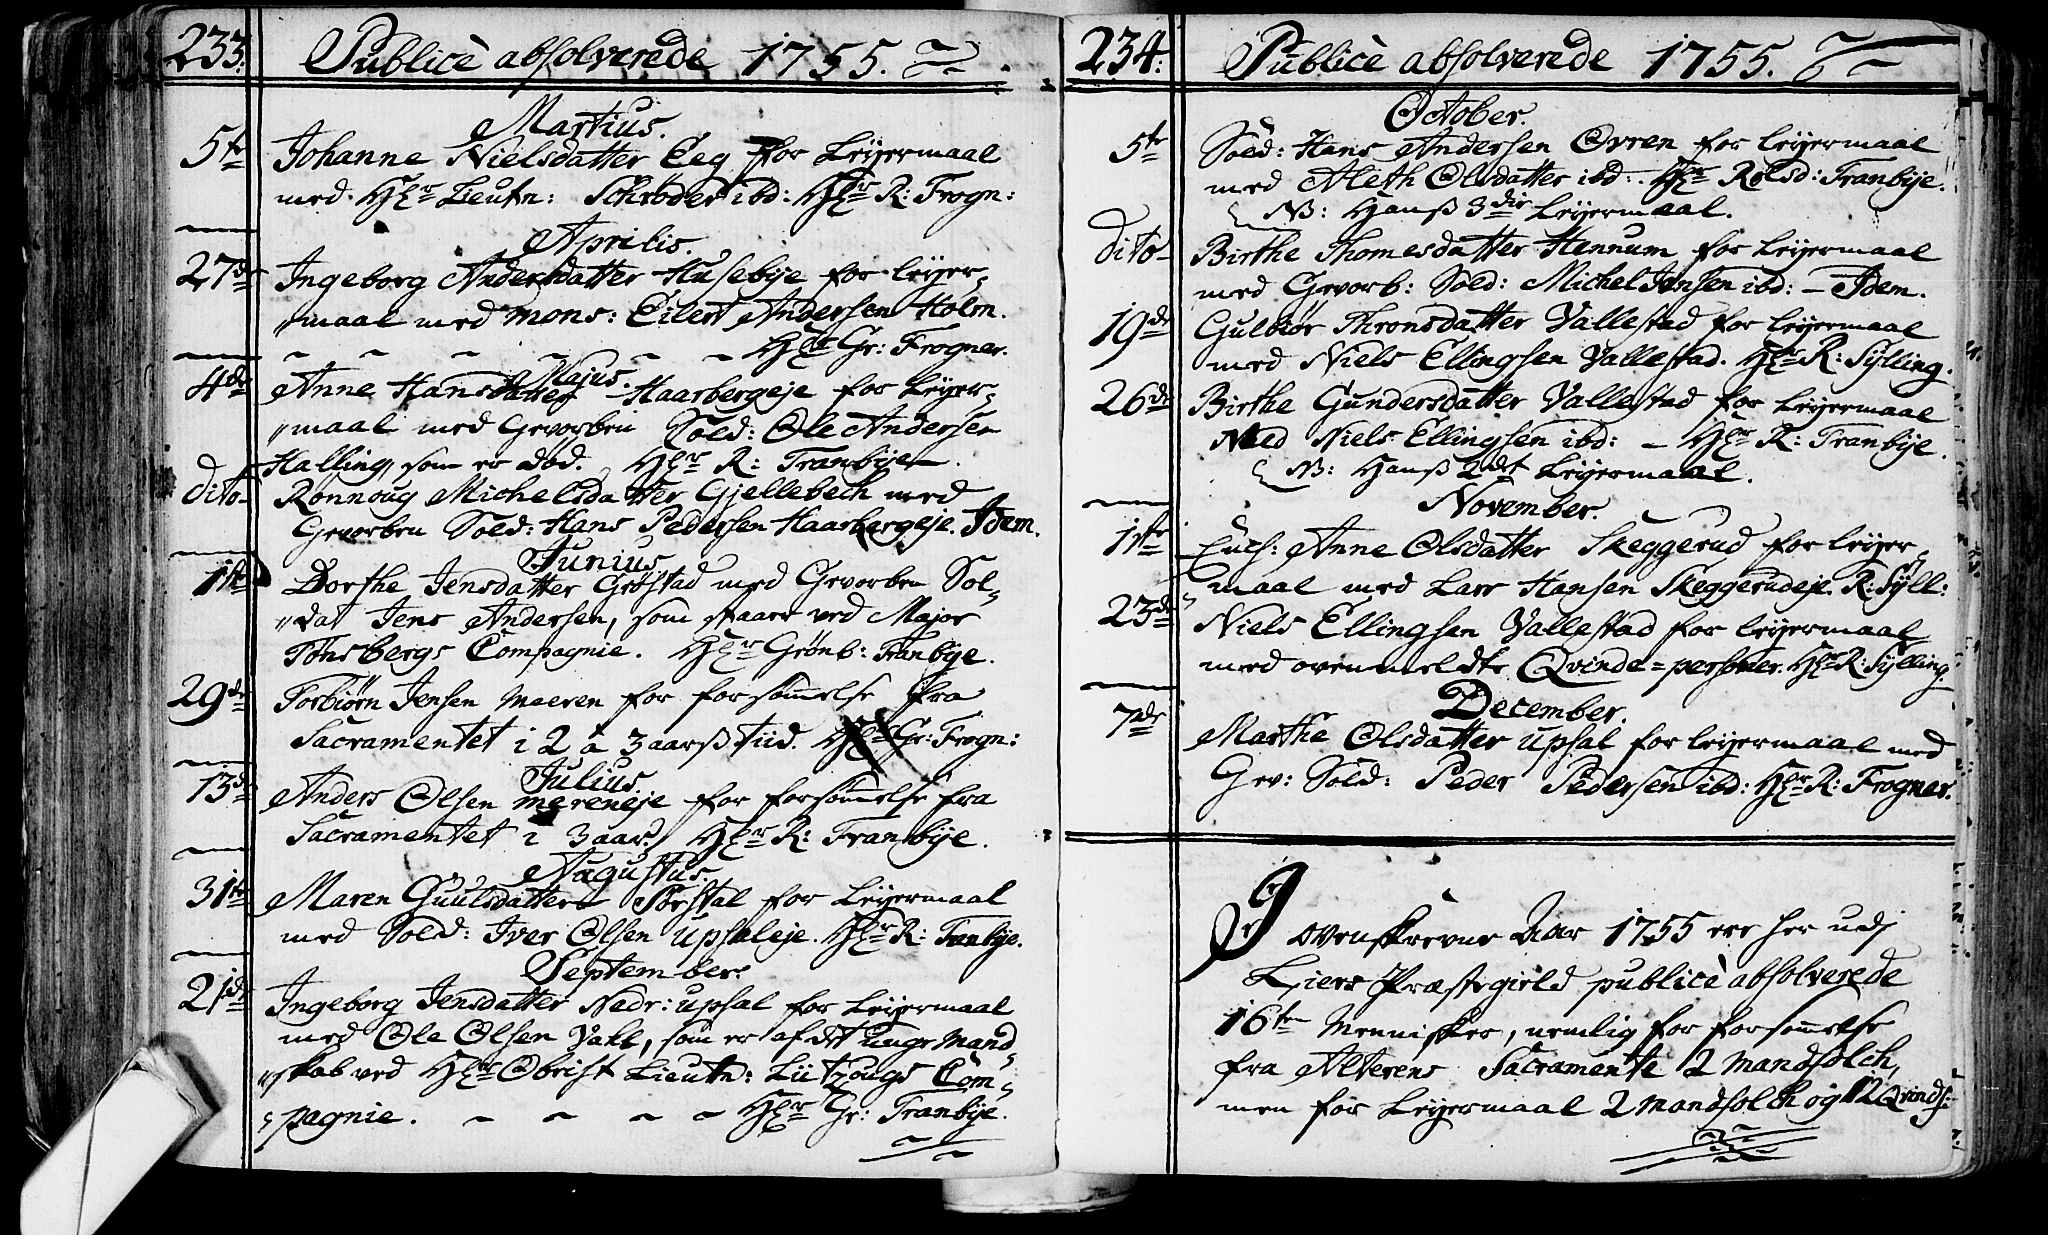 233. Publicè absolverede 1755.
Martius.
5te Johanne Nielsdatter Eeg for Leyermaal
med Hr Lieutn: Schrøder ibd: Hr R: Frogn:
Aprilis.
27de Ingeborg Andersdatter Husebye for leyer-
maal med Mons: Eilert Andersen Holm.
Hr Gr: Frogner.
Majus.
4de Anne Hansdatter Haarbergeje for Leyer-
maal med Gevorben Sold: Ole Andersen
Halling, som er død. Hr R: Tranbye.
dito Ronnoug Michelsdatter Gjellebech med
Gevorben Sold: Hans Pedersen Haarbergeje. Idem.
Junius
1te Dorthe Jensdatter Grøstad med Gevorben Sol-
dat Jens Andersen, som staaer ved Major
Tønsbergs Compagnie. Hr Grønb: Tranbye.
29de Torbiørn Jensen Meeren for forsømmelse fra
Sacramentet i 2 à 3 aarss tiid. Hr Gr: Frogn:
Julius.
13de Anders Olsen Mereneje for forsømmelse fra
Sacramentet i 3 aar. Hr R: Tranbye.
Augustus.
31te Maren Guulsdatter for Leyermaal
med Sold: Iver Olsen Upsaleje. Hr R: Tranbye.
September.
21de Ingeborg Jensdatter Nedr: Upsal for Leyermaal
med Ole Olsen, som er af det unge Mand-
skab ved Hr Obrist Lieutn: Lützougs Com-
pagnie. Hr Gr: Tranbye.
234. Publicè absolverede 1755.
October.
5te Sold: Hans Andersen Ovren for leyermaal
med Aleth Olsdatter ibd: Hr Rolsd: Tranbye.
NB: Hanss 3die Leyermaal.
dito Birthe Thomesdatter Hennum for Leyermaal
med Gevorb: Sold: Michel Jensen ibd: - Idem.
19de Gulbiør Thronsdatter Vallestad for leyermaal
med Niels Ellingsen Vallestad. Hr R: Sylling.
26de Birthe Gundersdatter Vallestad for Leyermaal
Med Niels Ellingsen ibd: - Hr R: Tranbye.
NB: Hanss 2det Leyermaal.
November.
11te Anne Olsdatter Skeggerud for leyer-
maal med Lars Hansen Skeggerudeje. R: Syll:
23de Niels Ellingsen Vallestad for leyermaal
med ovenmeldte Qvinde-personer. Hr R: Sylling.
December.
7de Marthe Olsdatter Upsal for leyermaal med
Gev: Sold: Peder Pedersen ibd: Hr R: Frogner.
I ovenskrevne Aar 1755 ere her udj
Liers Præstegield publicè absolverede
16ten Mennisker, nemlig for forsømmelse
fra Alterens Sacramente 2 Mandfolch,
men for Leyermaal 2 Mandfolch og 12 Qvindf: